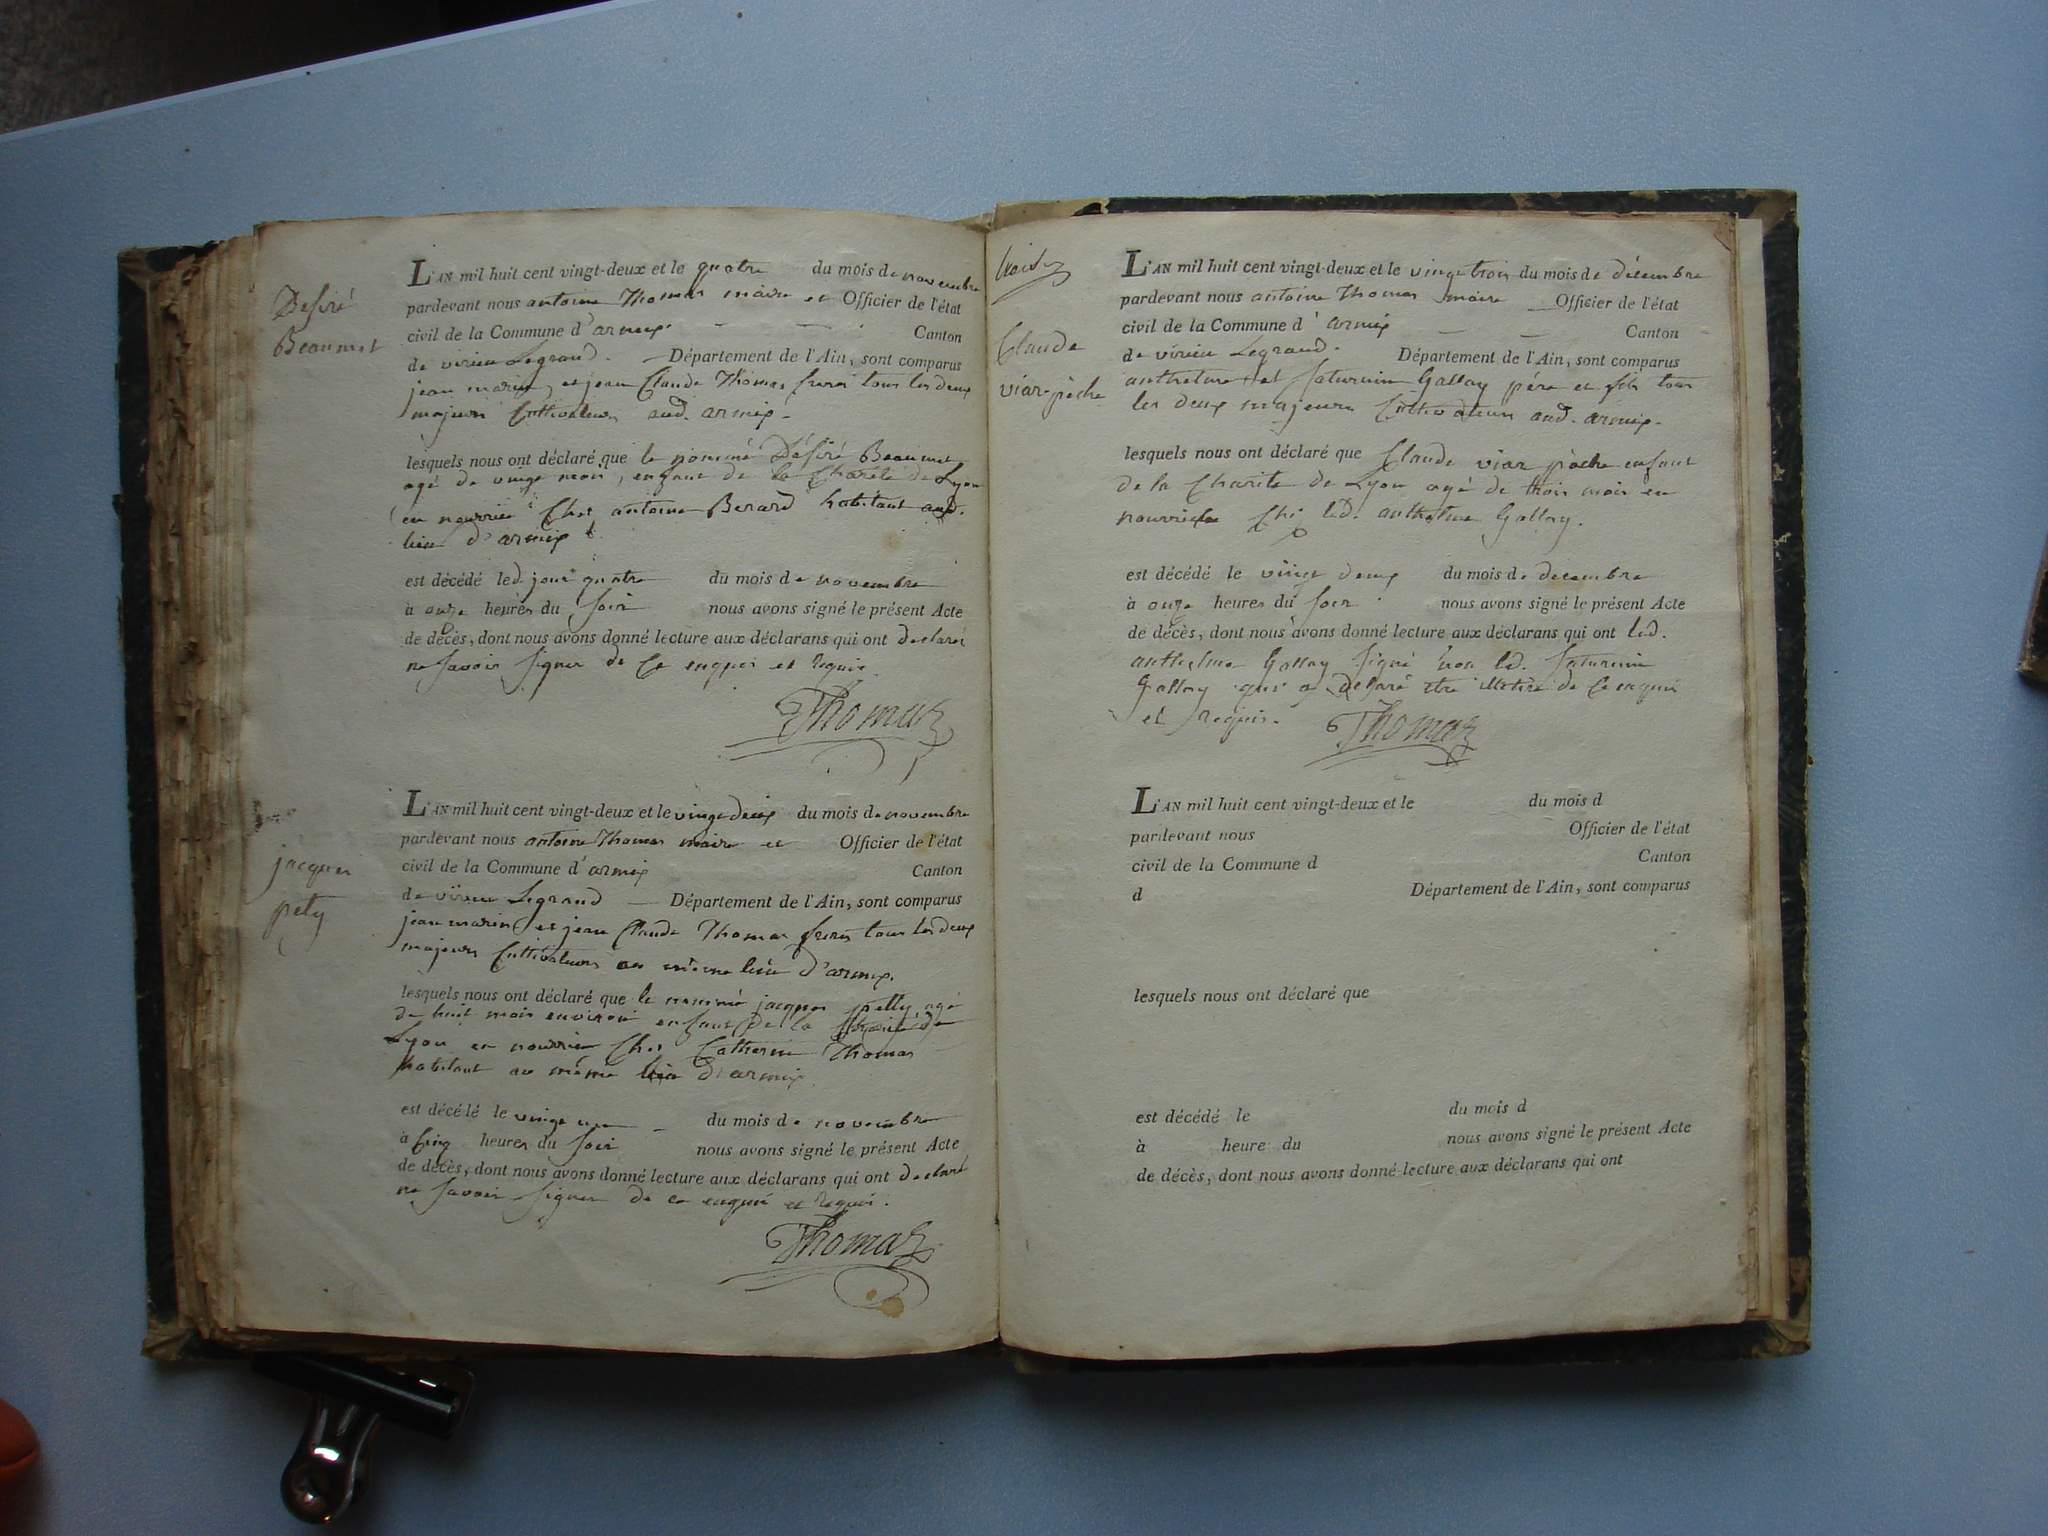 Désiré
Beaumet
L'AN mil huit cent vingt-deux et le quatre du mois de novembre
pardevant nous antoine Thomas maire et Officier de l'état
civil de la Commune d'armix Canton
de virieu Legrand. Département de l'Ain, sont comparus
jean marin, et jean Claude Thomas freres tous les deux
majeurs Cultivateurs aud. armix.
lesquels nous ont déclaré que le nommé Désiré Beaumet
agé de vingt mois, enfant de la Charité de Lyon
en nourrice Chez antoine Berard habitant aud.
lieu d'armix
est décédé led. jour quatre du mois de novembre
à onze heures du soir nous avons signé le présent Acte
de décès, dont nous avons donné lecture aux déclarans qui ont declaré
ne savoir signer de ce enquis et requis.
Thomas
jacques
pety
L'AN mil huit cent vingt-deux et le vingt deux du mois de novembre
pardevant nous antoine Thomas maire et Officier de l'état
civil de la Commune d'armix Canton
de virieu Legrand Département de l'Ain, sont comparus
jean marin et jean Claude Thomas freres tous les deux
majeurs Cultivateurs au même lieu d'armix.
lesquels nous ont déclaré que le nommé jacques petty, agé
de huit mois environ enfant de la Charité de
Lyon en nourrice Chez Catherine Thomas
habitant au même lieu d'armix
est décédé le vingt un du mois de novembre
à Cinq heures du soir nous avons signé le présent Acte
de décès, dont nous avons donné lecture aux déclarans qui ont declaré
ne savoir signer de ce enquis et requis.
Thomas
Claude
viar-pèche
L'AN mil huit cent vingt-deux et le vingt trois du mois de décembre
pardevant nous antoine Thomas maire Officier de l'état
civil de la Commune d'armix Canton
de virieu Legrand. Département de l'Ain, sont comparus
anthelme et saturnin Gallay père et fils tous
les deux majeurs Cultivateurs aud. armix.
lesquels nous ont déclaré que Claude viar pèche enfant
de la Charité de Lyon agé de trois mois en
nourrice Chez led. anthelme Gallay.
est décédé le vingt deux du mois de decembre
à onze heures du soir nous avons signé le présent Acte
de décès, dont nous avons donné lecture aux déclarans qui ont led.
anthelme Gallay signé non led. saturnin
Gallay qui a déclaré être illetiré de ce enquis
et requis.
Thomas
L'AN mil huit cent vingt-deux et le du mois d
pardevant nous Officier de l'état
civil de la Commune d Canton
d Département de l'Ain, sont comparus
lesquels nous ont déclaré que
est décédé le du mois d
à heure du nous avons signé le présent Acte
de décès, dont nous avons donné lecture aux déclarans qui ont